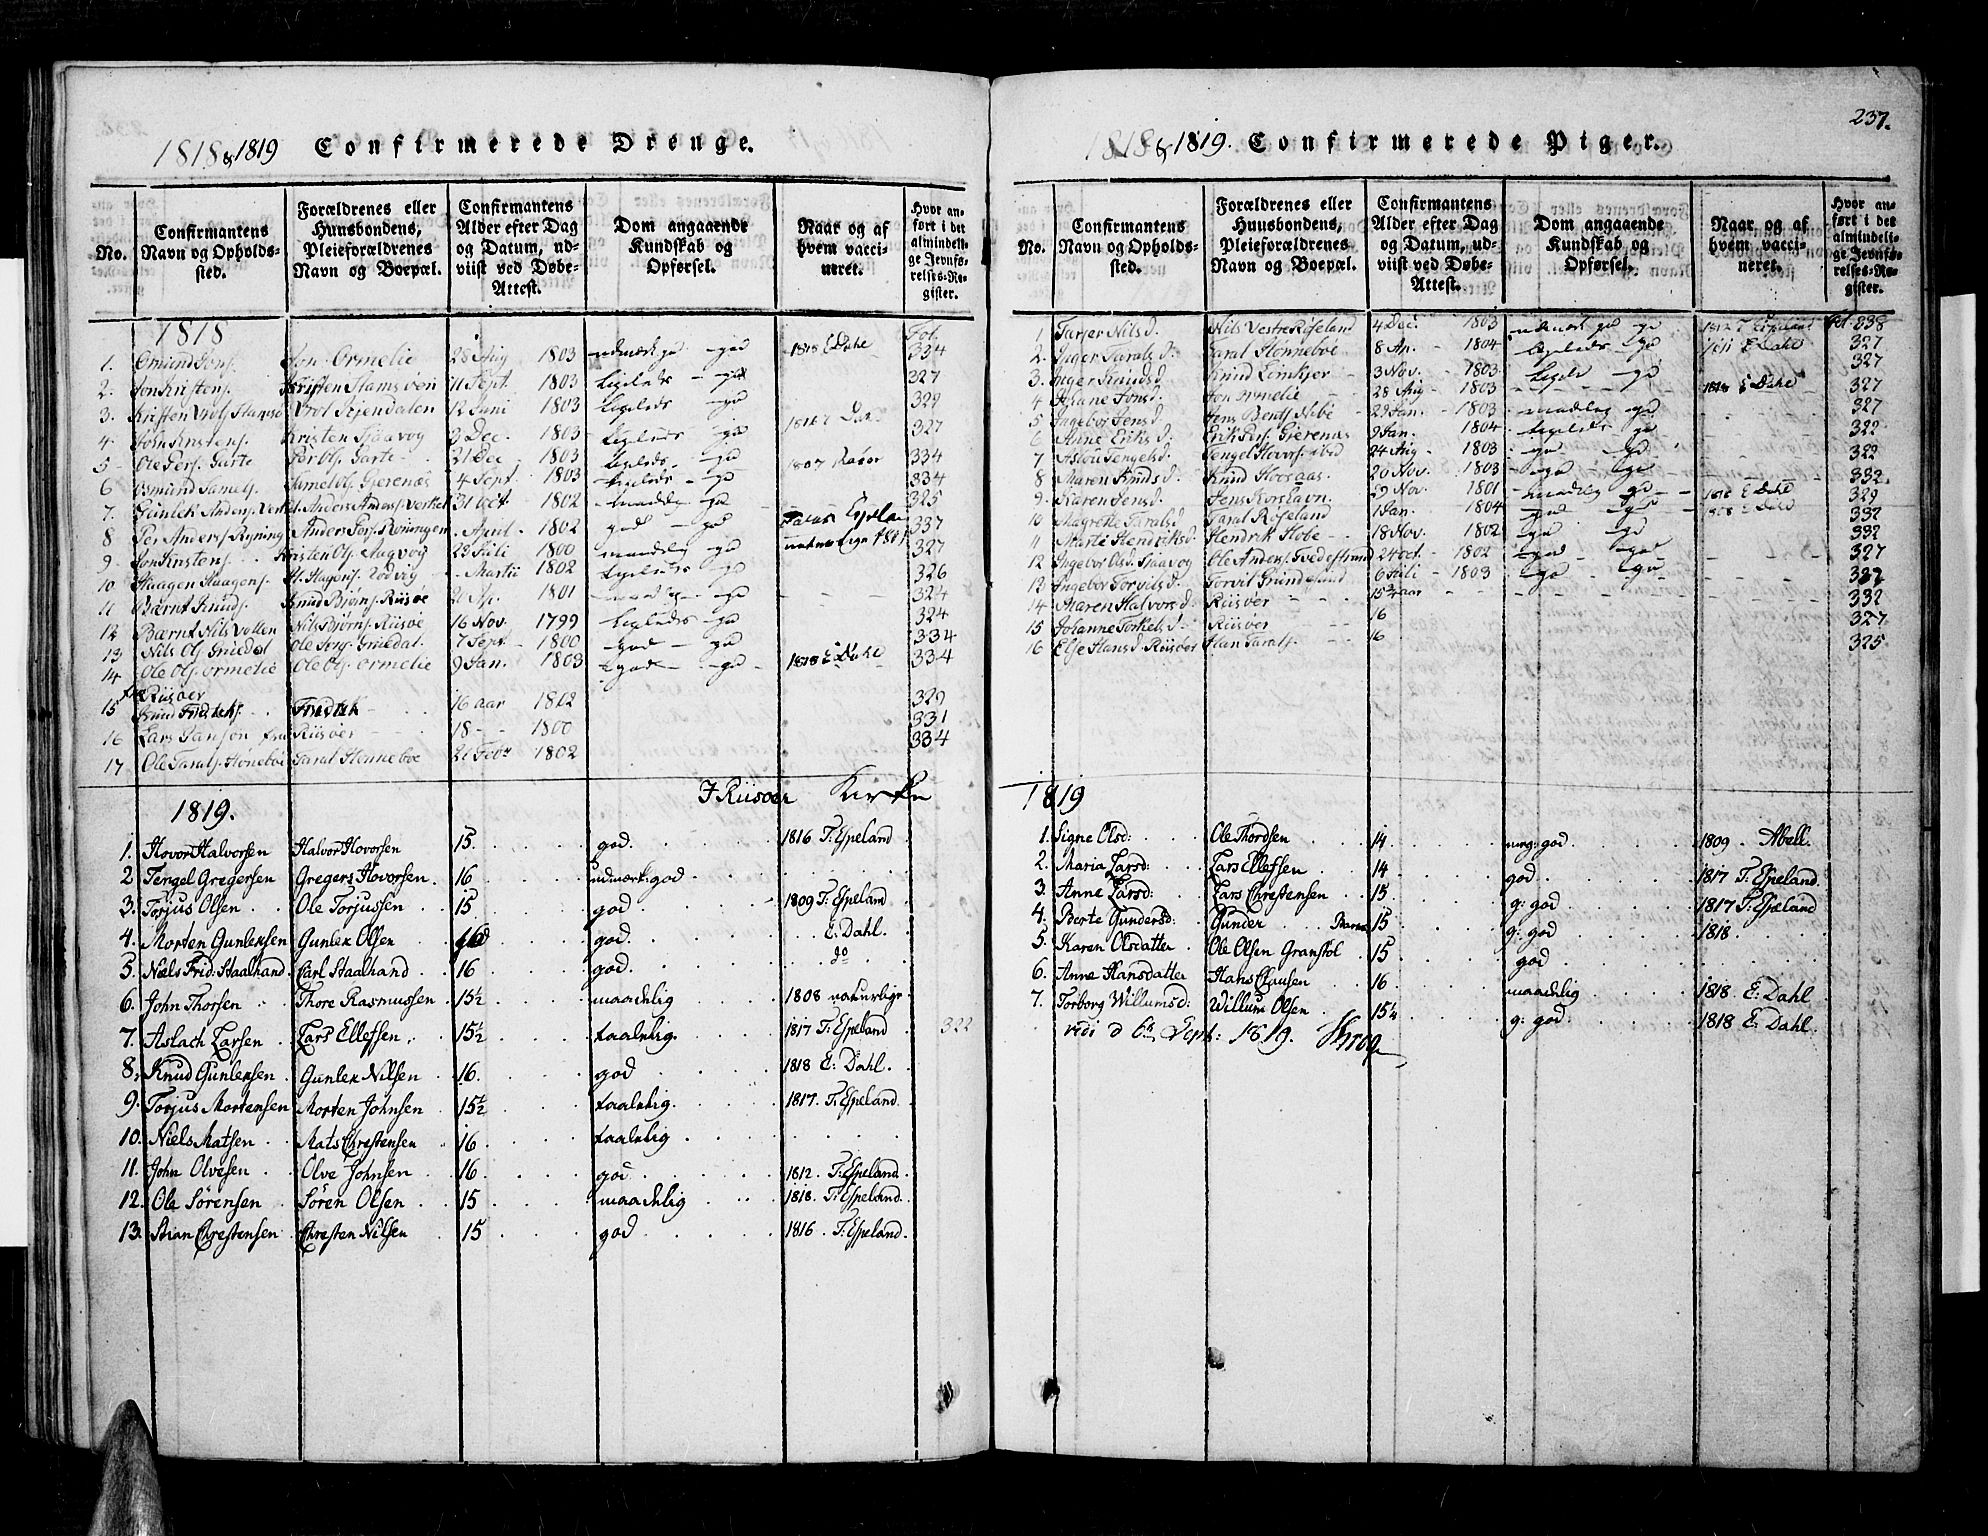 1818 & 1819 Confirmerede Drenge.
No.
Confirmantens Navn og Opholdssted.
Forældrenes eller Huusbondens, Pleieforældrenes Navn og Boepæl.
Confirmantens Alder efter Dag og Datum, udviist ved Døbe-Attest.
Dom angaaende Kundskab og Opførsel.
Naar og af hvem vaccineret.
Hvor anført i det almindelige Jevnførelses-Register.
1818 Fol.
1. Osmund Jons. Jon Ormelie 28 Aug 1803 udmærk gd - gd 1818 E Dahl 334
2. Jon Kristens. Kristen Stamsøen 11 Sept. 1803 Ligeleds - gd 327
3. 12 Juni 1803 Ligeleds - gd 329
4 Jon Kristens. Kristen Sjaavog 3 Dec. 1803 Ligeleds gd 327
5 Ole Pers. Garte Per Ols. Garte 21 Dec 1803 Ligeleds gd 1807 334
6 Osmund Samels. Samel Ols. Gjerenæs 4 Sept. 1803 Ligeleds - gd 334
7. Gunlek Anders. Verket Anders Anders. Verket 31 Oct 1802 maadelig gd 325
8 Per Anders. Anders Pers. April 1802 god - gd 337
9 Jon Kristens. Kristen Ols. Aagvog 28 Juli 1800 maadelig gd 327
10 Haagen Haagens. Martii 1802 Ligeleds gd 326
11 Bærnt Knuds. Knud Bjørns. Riisøe 21 Ap. 1801 gd 324
12 Bærnt Nils Vollen Nils Bjørns. Riisøe 16 Nov. 1799 Ligleds - gd 324
13 Nils Ols. 7 Sept. 1800 god - gd 334
14 Ole Ols. Ormelie Ole Ols. Ormelie 9 Jan. 1803 god - gd 1818 E Dahl 334
fra Riisøer
15 Knud Fredriks. Fredrik 16 aar 1802 329
16 Lars Jansøn fra Riisøer 18 1800 331
17 Ole Tarals. Hønebøe Taral Hønneboe 21 Febr 1802 334
I Riisøer Kirke
1819.
1. Hovor Halvorsen Halvor Hovorsen 15. god. 1816 T: Espeland
2. Tengel Gregersen Gregers Hovorsen. 16 udmærk: god
3. Torjus Olsen Ole Torjussen 15 god 1809 T: Espeland
4. Morten Gunleksen Gunlek Olsen 16 god. E: Dahl.
5. Niels Frid: Staalhand. Carl Staalhand 16 god. do
6. John Thorsen Thore Rasmussen 15½ maadelig 1808 naturlige
7. Aslach Larsen Lars Ellefsen 15½ taalelig. 1817 T: Espeland 322
8. Knud Gunleksen Gunlek Nilsen 16. god 1818 E: Dahl.
9. Torjus Mortensen Morten Johnsen 15½ taalelig. 1817. T: Espeland
10. Niels Matsen Mats Chrestensen 16 taalelig.
11. John Olvesen Olve Johnsen 16 god 1812. T: Espeland
12. Ole Sørensen Sören Olsen 15 maadelig 1818. T: Espeland.
13. Stian Chrestensen Chresten Nilsen 15 god 1816. T: Espeland.
237.
1818 & 1819. Confirmerede Piger.
No.
Confirmantens Navn og Opholdssted.
Forældrenes eller Huusbondens, Pleieforældrenes Navn og Boepæl.
Confirmantens Alder efter Dag og Datum, udviist ved Døbe-Attest.
Dom angaaende Kundskab og Opførsel.
Naar og af hvem vaccineret.
Hvor anført i det almindelige Jevnførelses-Register.
1 Tarjer Nils d. Nils Vestre Røseland 4 Dec. 1803 udmærk gd gd 1812 T Espeland fol. 338
2. Inger Tarals d. Taral Hønnebøe 8 Ap. 1804 Ligeleds gd 1811 E Dahl 327
3. Inger Knuds d. Knud 3 Nov. 1803 Ligele gd 327
4 Jon Ormelie 28 Aug 1803 1818 E Dahl 327
5 Ingebor Jens d. Jens Bents. 29 Jan. 1803 maadelig gd 327
6 Anne Eriks d. Erik Pers. Gjerenæs 9 Jan. 1804 Ligeleds - gd 322
7 Aslou Tengels d. 24 Aug 1803 gd gd 322
8 Maren Knuds d. Knud 20 Nov. 1803 gd gd 332
9. Karen Jens d. Jens Korshavn 29 Nov. 1801 maadelig gd 1818 E Dahl 329
10 Magrette Tarals d Taral Røseland 1 Jan. 1804 god gd E Dahl 332
11 Marte Hendriks d. Hendrik Hobe 18 Nov. 1802 gd gd 332
12 Ingebor Ols d. Sjaavog Ole Anders. Tvedestrand 24 Oct. 1802 god god 327
13 Ingebor Torvils d. Torvil 6 Juli 1803 gd gd 327
14 Maren Halvors d. Riisøer 15¾ aar 332
15 Johanne Torkels d. Riisøer 16 327
16 Else Hans d. Riisøer Han Tarals. 16 325
1819
1. Signe Olsd: Ole Thordsen 14 meg: god 1809 Abell.
2. Maria Larsd: Lars Ellefsen 14 god 1817 T: Espeland.
3. Anne Larsd: Lars Chrestensen 15 g: god 1817 T: Espeland
4. Berte Gundersd: Gunder 15 g: god 1818.
5. Karen Olsdatter Ole Olsen Granstøl 15 god
6. Anne Hansdatter Hans Clausen 16 maadelig 1818. E: Dahl
7. Torborg Willumsd: Willum Olsen 15¼ g: god 1818 E: Dahl.
vidi d 6te Sept: 1819. Krog